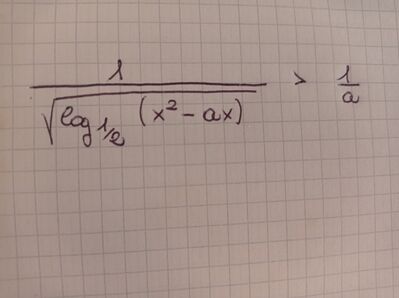 1/√(log_{1/2} (x² - ax)) > 1/a